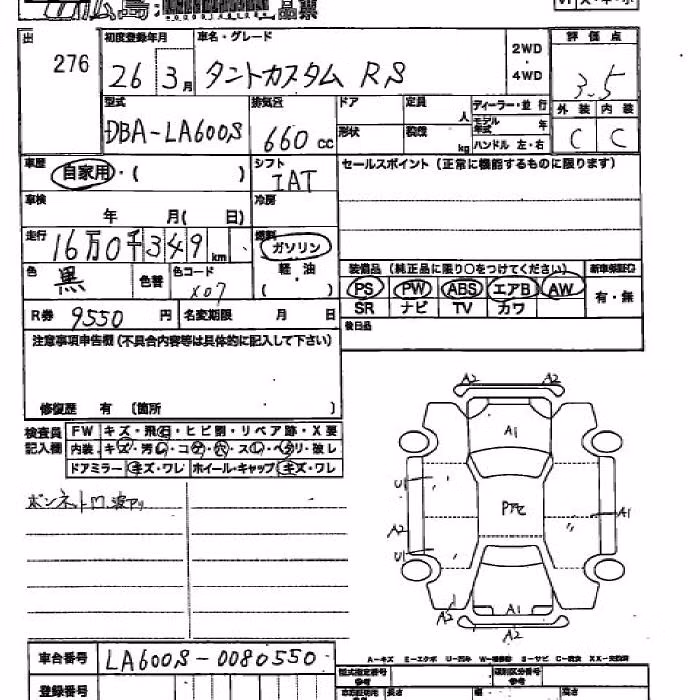 広島
品票
出 276
初度登録年月 26 3月
車名・グレード タントカスタム RS
2WD
・
4WD
評価点 3.5
型式 DBA-LA600S
排気量 660 cc
ドア
定員 人
形状
積載 kg
ディーラー・並行
モデル年式 年
ハンドル 左・右
外装 内装
C C
車歴 自家用・( )
シフト IAT
セールスポイント(正常に機能するものに限ります)
車検 年 月( 日)
冷房
走行 16万0千349km
燃料 ガソリン
軽油
( )
色 黒
色替
色コード X07
装備品(純正品に限り○をつけてください)
新車保証口
PS PW ABS エアB AW
有・無
SR ナビ TV カワ
R券 9550 円
名変期限 月 日
後日品
注意事項申告欄(不具合内容等は具体的に記入して下さい)
修復歴 有 〔箇所 〕
検査員記入欄
FW キズ・飛石・ヒビ割・リペア跡・X要
内装 キズ・汚レ・コゲ・穴・スレ・ベタリ・破レ
ドアミラー キズ・ワレ ホイール・キャップ キズ・ワレ
ボンネット 波アリ
A2 A2
A1
U1
Pアセ
A1
A2
U1
A1
A2
A2
車台番号 LA600S-0080550
A-キズ E-エクボ U-凹み W-補修跡 S-サビ C-腐食 XX-交換済
登録番号
型式指定番号
類別区分番号
参考
長さ 幅 高さ